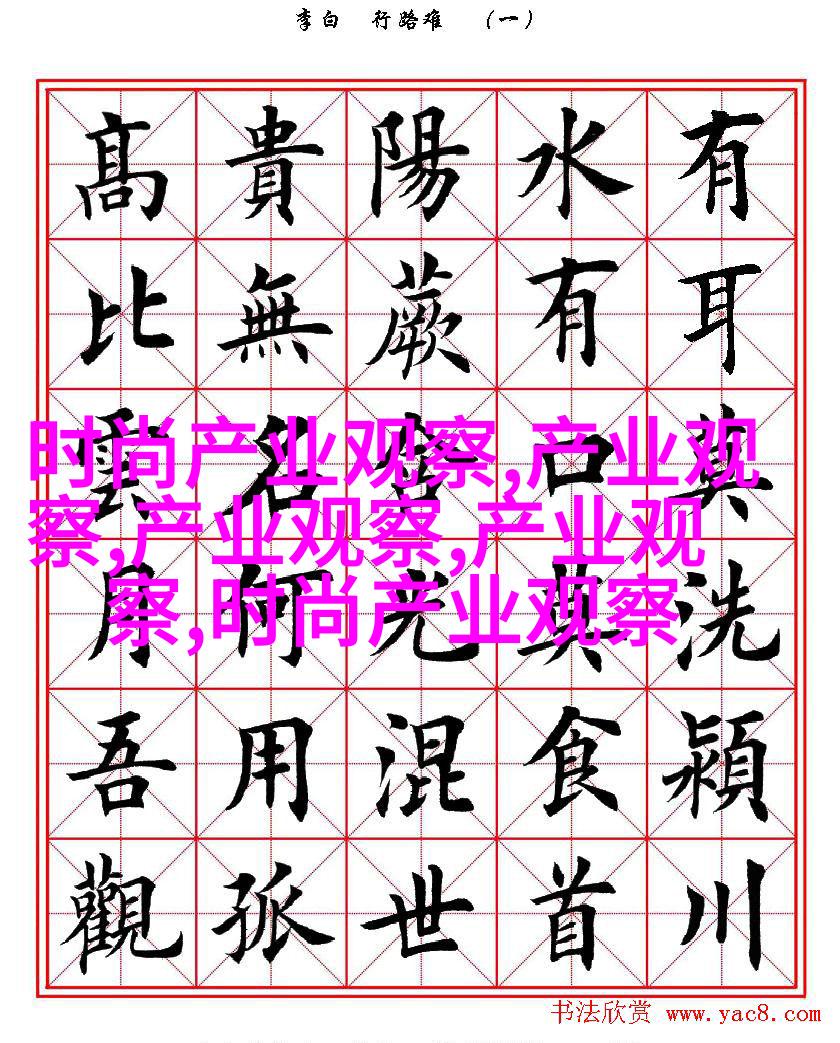 李白 行路难 （一）
有耳莫洗潁川
水有口莫食首
陽蕨含光混世
貴無名何用孤
髙比雲月吾觀
时尚产业观察,产业观
察,产业观察,产业观
察,时尚产业观察
书法欣赏 www.yac8.com